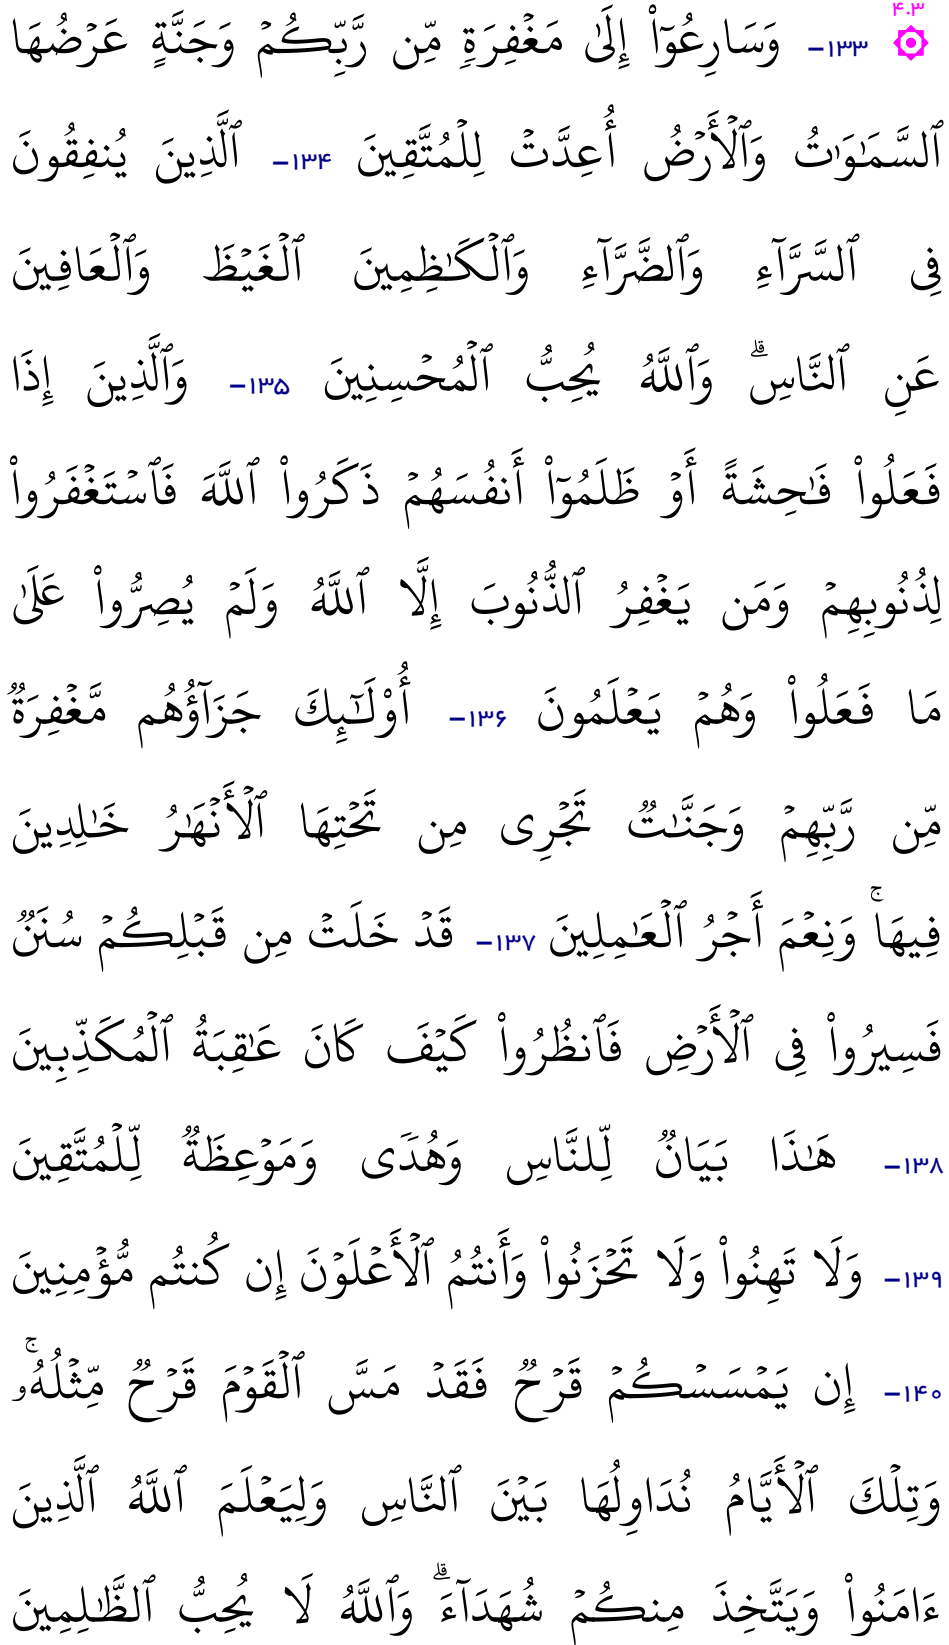 ۴.۳
۞ ۱۳۳- وَسَارِعُوٓاْ إِلَىٰ مَغۡفِرَةٖ مِّن رَّبِّكُمۡ وَجَنَّةٍ عَرۡضُهَا
ٱلسَّمَٰوَٰتُ وَٱلۡأَرۡضُ أُعِدَّتۡ لِلۡمُتَّقِينَ ۱۳۴- ٱلَّذِينَ يُنفِقُونَ
فِي ٱلسَّرَّآءِ وَٱلضَّرَّآءِ وَٱلۡكَٰظِمِينَ ٱلۡغَيۡظَ وَٱلۡعَافِينَ
عَنِ ٱلنَّاسِۗ وَٱللَّهُ يُحِبُّ ٱلۡمُحۡسِنِينَ ۱۳۵- وَٱلَّذِينَ إِذَا
فَعَلُواْ فَٰحِشَةً أَوۡ ظَلَمُوٓاْ أَنفُسَهُمۡ ذَكَرُواْ ٱللَّهَ فَٱسۡتَغۡفَرُواْ
لِذُنُوبِهِمۡ وَمَن يَغۡفِرُ ٱلذُّنُوبَ إِلَّا ٱللَّهُ وَلَمۡ يُصِرُّواْ عَلَىٰ
مَا فَعَلُواْ وَهُمۡ يَعۡلَمُونَ ۱۳۶- أُوْلَٰٓئِكَ جَزَآؤُهُم مَّغۡفِرَةٞ
مِّن رَّبِّهِمۡ وَجَنَّٰتٞ تَجۡرِي مِن تَحۡتِهَا ٱلۡأَنۡهَٰرُ خَٰلِدِينَ
فِيهَاۚ وَنِعۡمَ أَجۡرُ ٱلۡعَٰمِلِينَ ۱۳۷- قَدۡ خَلَتۡ مِن قَبۡلِكُمۡ سُنَنٞ
فَسِيرُواْ فِي ٱلۡأَرۡضِ فَٱنظُرُواْ كَيۡفَ كَانَ عَٰقِبَةُ ٱلۡمُكَذِّبِينَ
۱۳۸- هَٰذَا بَيَانٞ لِّلنَّاسِ وَهُدٗى وَمَوۡعِظَةٞ لِّلۡمُتَّقِينَ
۱۳۹- وَلَا تَهِنُواْ وَلَا تَحۡزَنُواْ وَأَنتُمُ ٱلۡأَعۡلَوۡنَ إِن كُنتُم مُّؤۡمِنِينَ
۱۴۰- إِن يَمۡسَسۡكُمۡ قَرۡحٞ فَقَدۡ مَسَّ ٱلۡقَوۡمَ قَرۡحٞ مِّثۡلُهُۥۚ
وَتِلۡكَ ٱلۡأَيَّامُ نُدَاوِلُهَا بَيۡنَ ٱلنَّاسِ وَلِيَعۡلَمَ ٱللَّهُ ٱلَّذِينَ
ءَامَنُواْ وَيَتَّخِذَ مِنكُمۡ شُهَدَآءَۗ وَٱللَّهُ لَا يُحِبُّ ٱلظَّٰلِمِينَ